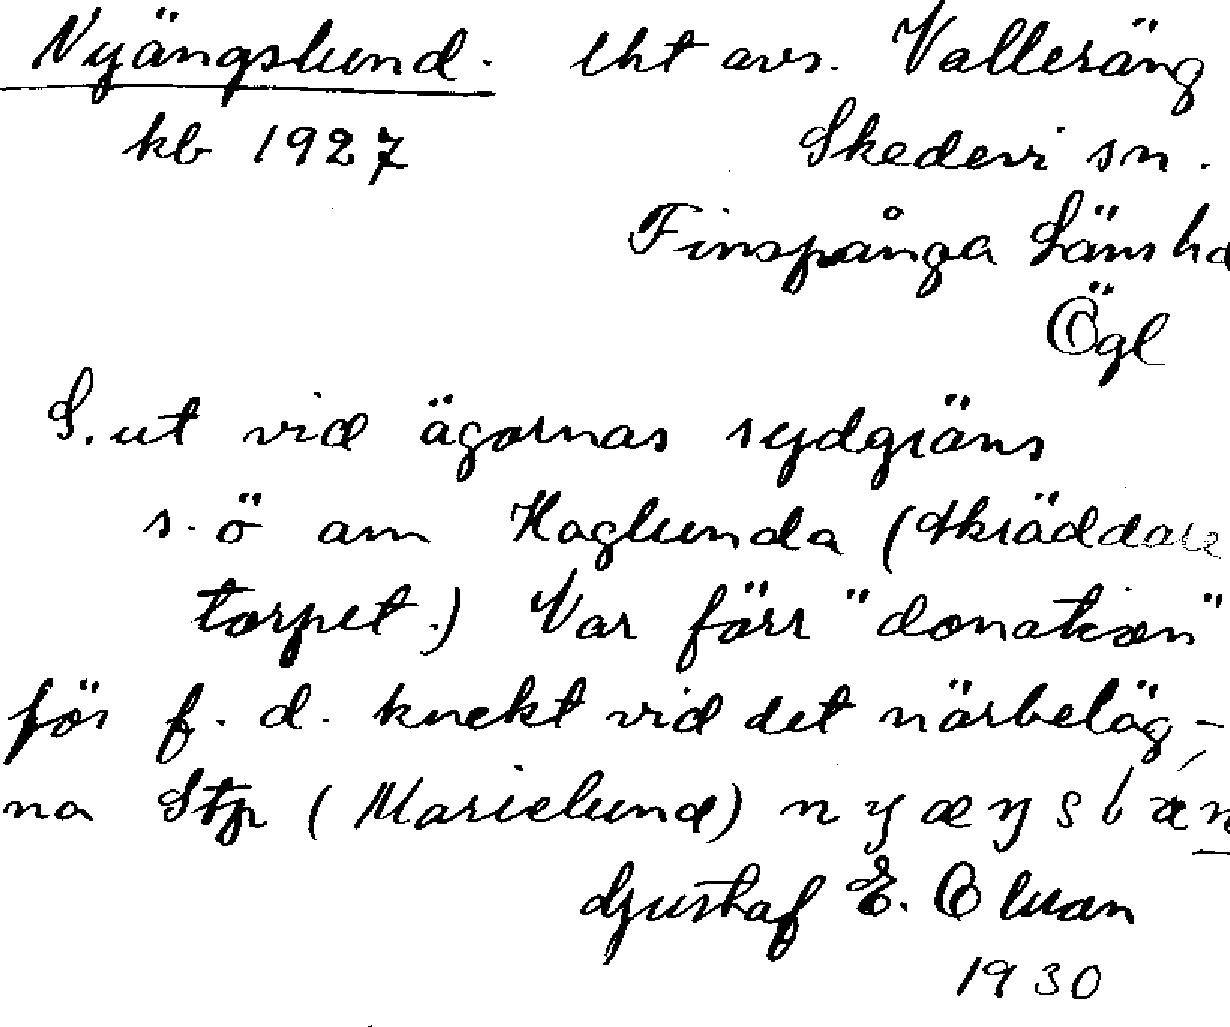 Nyängslund. lht avs. Valleräng
kb 1927 Skedevi sn.
Finspånga Läns hd
Ögl
S. ut vid ägornas sydgräns
s. ö om Haglunda (Skräddare
torpet.) Var förr "donation"
för f. d. knekt vid det närbeläg-
na Stp (Marielund)
Gustaf E.
1930